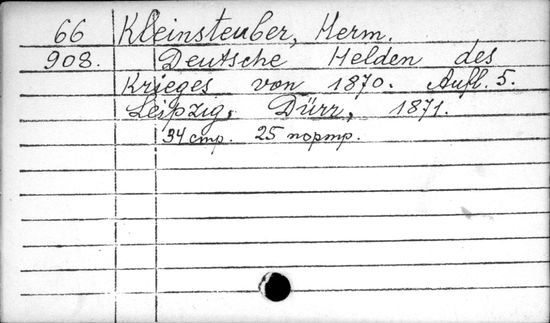 66 Kleinsteuber, Herm.
908. Deutsche Helden des
Krieges von 1870. Aufl. 5.
Leipzig, Dürr, 1871.
34 стр. 25 портр.